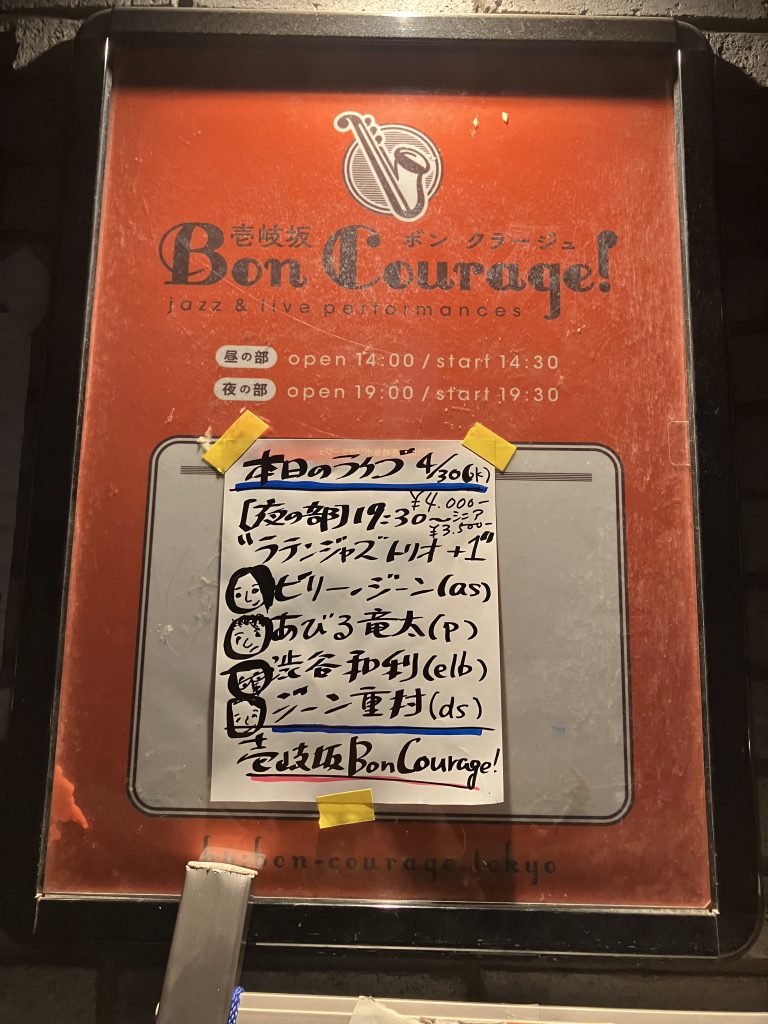 壱岐坂 ボン クラージュ
Bon Courage!
jazz & live performances
昼の部 open 14:00 / start 14:30
夜の部 open 19:00 / start 19:30
本日のライブ 4/30(水)
¥4.000-
[夜の部] 19:30~ シニア ¥3.500-
"ラテンジャズトリオ+1"
ビリー・ジーン(as)
あびる竜太(p)
渋谷和利(elb)
ジーン重村(ds)
壱岐坂 Bon Courage!
hp:bon-courage.tokyo